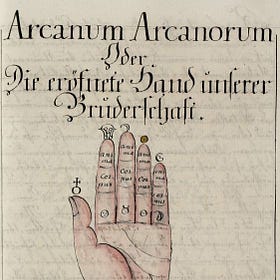 Arcanum Arcanorum
Oder
Die eröfnete Hand unserer
Bruderschaft.